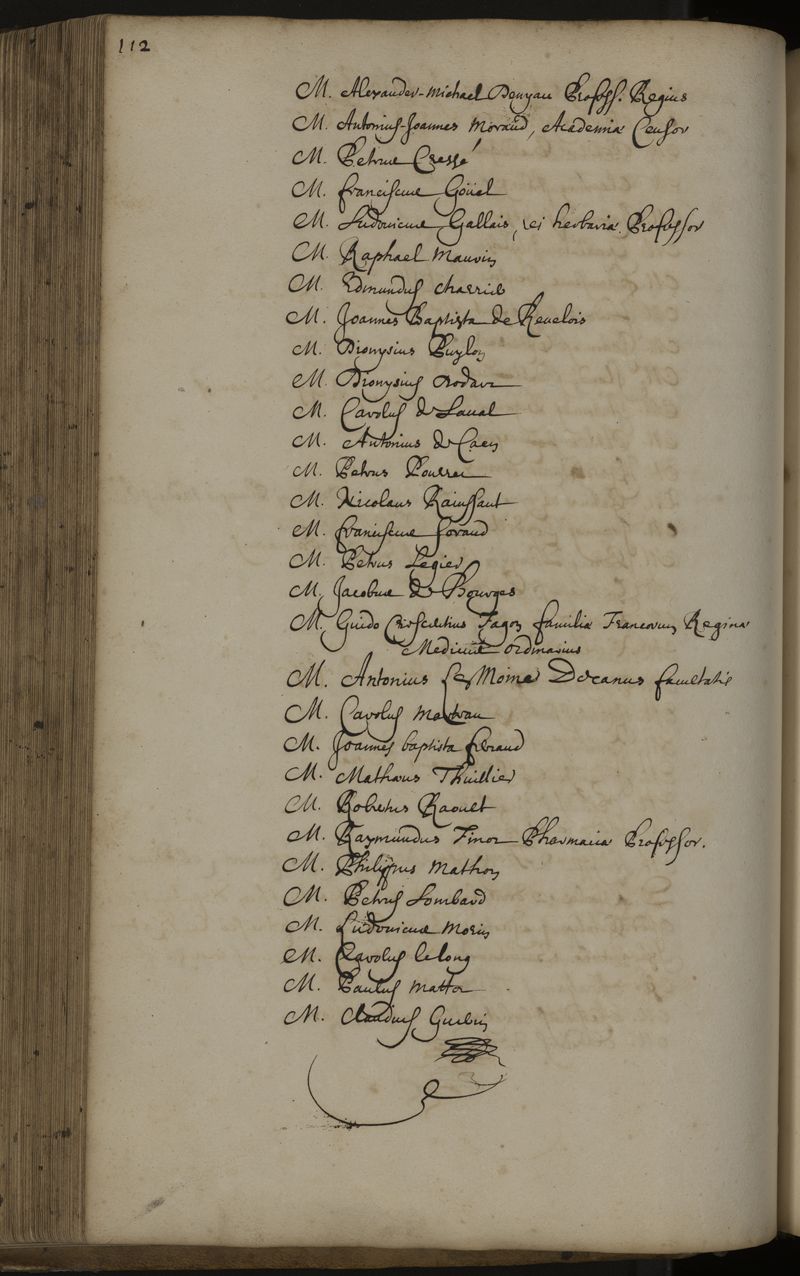 112
M. Alexander-Michael Denyau Professs. Regius
M. Antonius-Joannes Morand, Academiæ Censor
M. Petrus Cressé
M. franciscus Goüel
M. Ludovicus Gallais, rei herbariæ Professor
M. Raphael Mauvin
M. Edmundus
M. Joannes Baptista de Revelois
M. Dionysius Puylon
M. Dionysius Dodart
M. Carolus de Laval
M. Antonius de Caen
M. Petrus Pourrei
M. Nicolaus Rainssant
M. franciscus
M. Petrus Legier
M. Jacobus de Bourges
M. Guido Crescentius Fagon familiæ Francorum Reginæ
Medicus ordinarius
M. Antonius Le Moine Decanus facultatis
M. Carolus
M. Joannes baptista feraud
M. Mathæus Thuillier
M. Robertus Raoult
M. Raymundus Finot Pharmaciæ Professor.
M. Philippus Mathon
M. Petrus Lombard
M. Ludovicus Morin
M. Carolus lelong
M. Paulus Mattot
M. Claudius Guerin